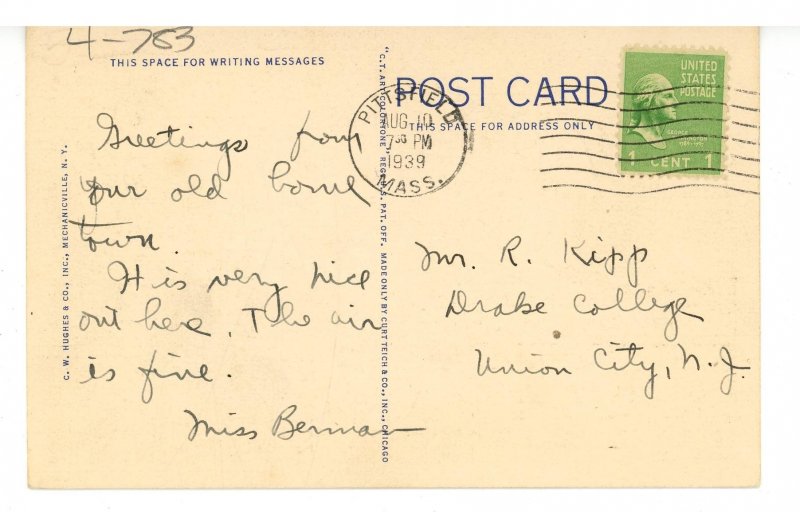 4-783
THIS SPACE FOR WRITING MESSAGES
Greetings from
your old home
town.
It is very nice
out here. The air
is fine.
Miss Berman
C. W. HUGHES & CO., INC., MECHANICVILLE, N. Y.
"C.T. ART-COLORTONE" REG. U.S. PAT. OFF. MADE ONLY BY CURT TEICH & CO., INC., CHICAGO
POST CARD
THIS SPACE FOR ADDRESS ONLY
PITTSFIELD
AUG 10
7 30 PM
1939
MASS.
UNITED
STATES
POSTAGE
GEORGE
WASHINGTON
1 CENT 1
Mr. R. Kipp
Drake College
Union City, N.J.